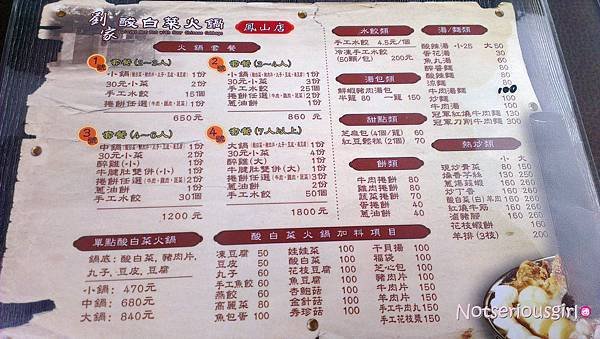 劉家 酸白菜火鍋 鳳山店
火鍋套餐
1號 套餐(2~3人)
小鍋 1份
30元小菜 2份
手工水餃 15個
捲餅任選(牛肉、雞肉、蔬菜) 1份
650元
2號 套餐(3~4人)
小鍋 1份
30元小菜 1份
手工水餃 25個
捲餅任選(牛肉、雞肉、蔬菜) 1份
蔥油餅 1份
860元
3號 套餐(4~6人)
中鍋 1份
30元小菜 2份
醉雞(小) 1份
牛腱肚雙併(小) 1份
捲餅任選(牛肉、雞肉、蔬菜) 1份
蔥油餅 1份
手工水餃 30個
1200元
4號 套餐(7人以上)
大鍋 1份
30元小菜 4份
醉雞(大) 1份
牛腱肚雙併(大) 1份
捲餅任選(牛肉、雞肉、蔬菜) 3份
蔥油餅 2份
手工水餃 50個
1800元
單點酸白菜火鍋
鍋底:酸白菜,豬肉片,
丸子,豆皮,豆腐
小鍋:470元
中鍋:680元
大鍋:840元
酸白菜火鍋加料項目
凍豆腐 50
豆皮 50
丸子 60
手工魚餃 60
燕餃 60
高麗菜 80
魚包蛋 100
娃娃菜 100
酸白菜 100
花枝豆腐 100
魚豆腐 100
杏鮑菇 100
金針菇 100
秀珍菇 100
干貝揚 100
福袋 100
芝心包 100
豬肉片 100
羊肉片 150
手工牛肉丸 150
手工花枝漿 150
水餃類
手工水餃 4.5元/個
冷凍手工水餃
(50顆/包) 200元
湯包類
鮮蝦豬肉湯包
半籠 80 一籠 150
甜點類
芝麻包(4個/籠) 60
紅豆鬆糕(2個) 70
餅類
牛肉捲餅 80
雞肉捲餅 80
蔬菜捲餅 70
香捲餅 40
蔥油餅 40
湯/麵類
酸辣湯 小25 大50
蛋花湯 30
魚丸湯 60
醉香麵 80
酸辣麵 80
涼麵
炸醬麵
牛肉湯 100
冠軍紅燒牛肉麵 130
冠軍刀削牛肉麵 300
熱炒類
小 大
現炒青菜
燒香芋絲 130
蔥爆菇蝦 160
炒丁香 160
酸白菜(白)羊肉 160 260
紅燒牛筋 160 260
滷豬腳 160 260
花枝蝦餅 160
羊排(3枝) 200
Notseriousgirl